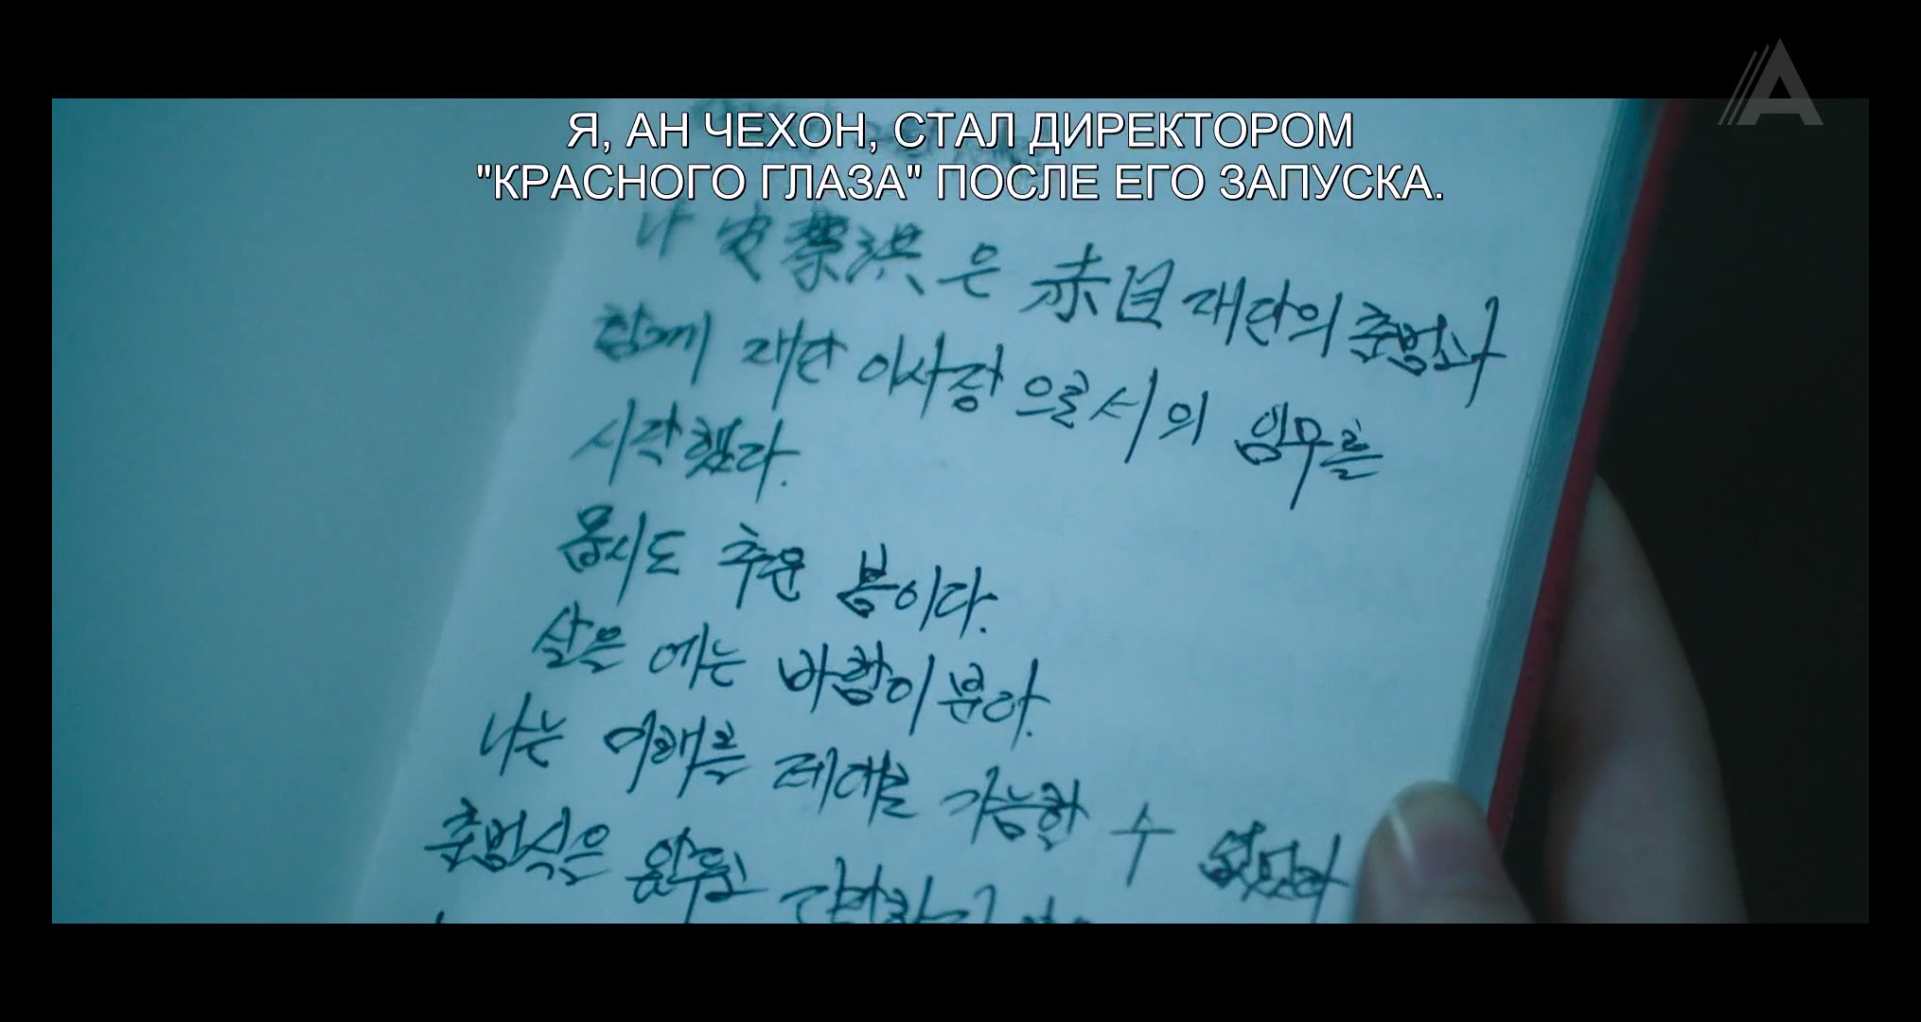 Я, АН ЧЕХОН, СТАЛ ДИРЕКТОРОМ
"КРАСНОГО ГЛАЗА" ПОСЛЕ ЕГО ЗАПУСКА.
나 安蔡洪은 赤目재단의 출범과
함께 재단 이사장으로서의 임무를
시작했다.
몹시도 추운 봄이다.
살은 에는 바람이 분다.
나는 미래를 제대로 가늠할 수 없었다
출범식은 앞두고